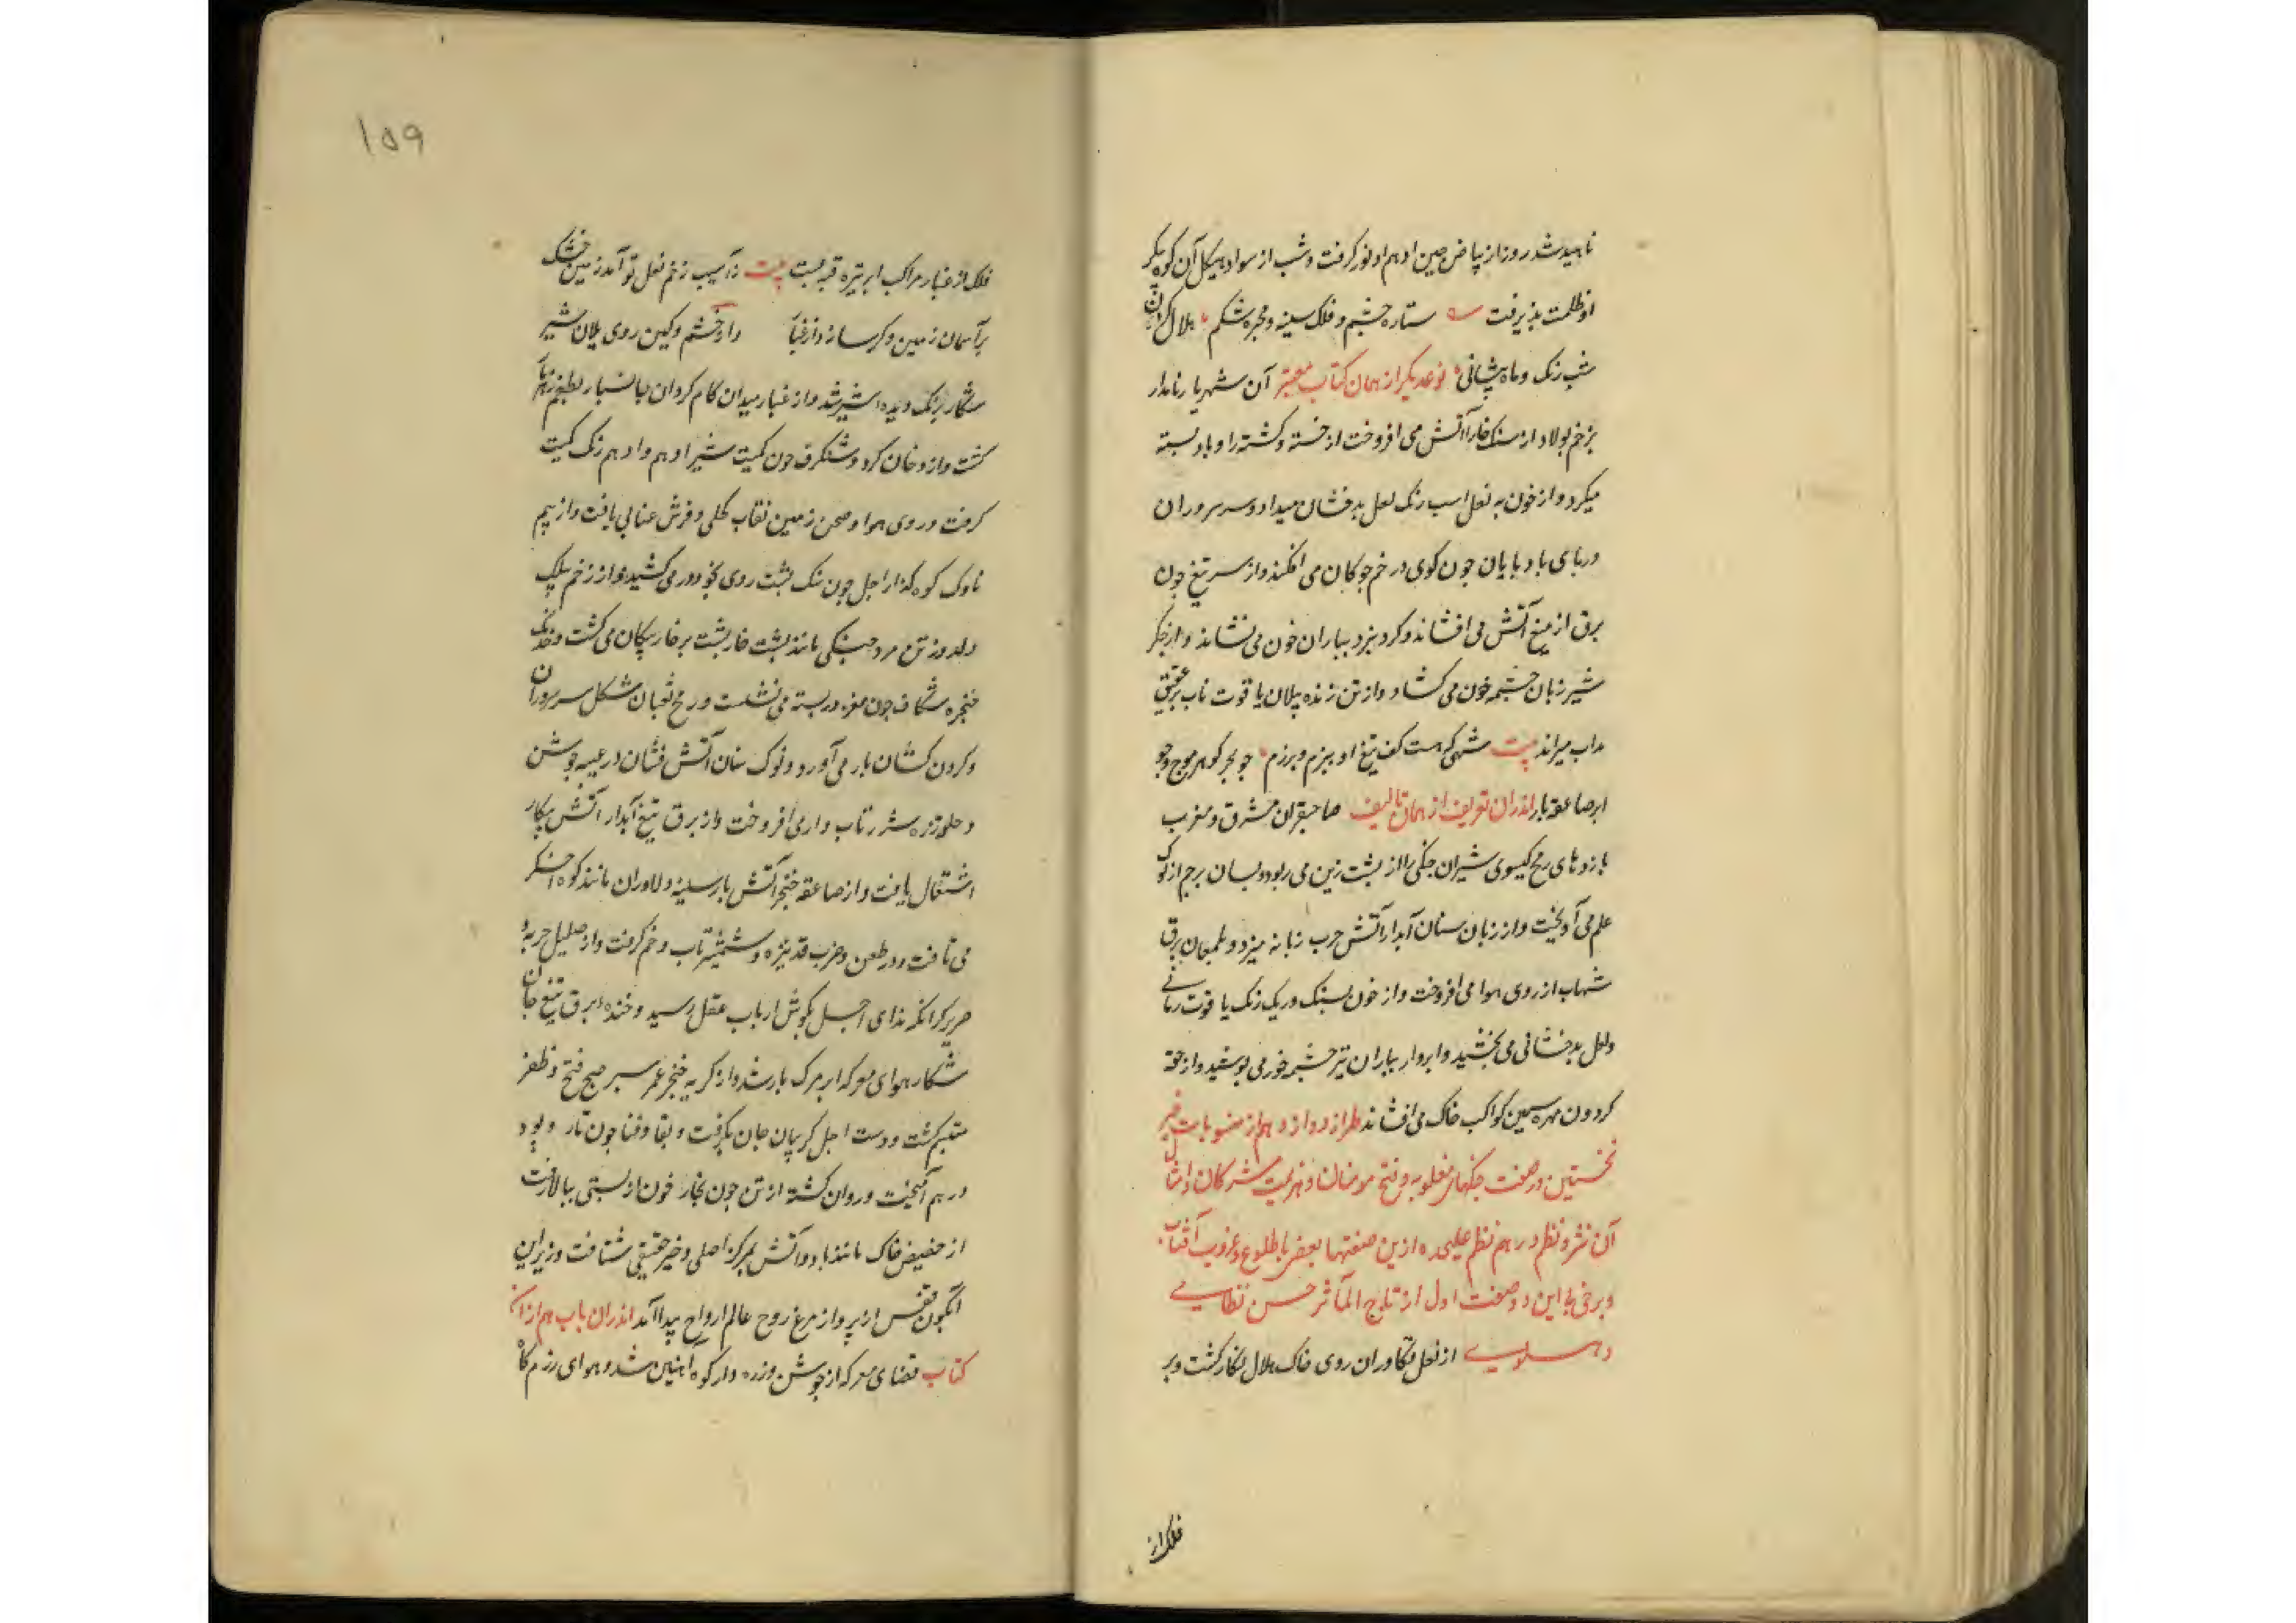 ناهید شد روز از بیاض جبین ادهم او نور کرفت و شب از سواد هیکل آن کوه پیکر
او ظلمت پذیرفت ستاره چشم و فلک سینه و مجره شکم هلال
شب رنک و ماه پیشانی نوعدیکر از همان کتاب معتبر آن شهریار نامدار
بزخم پولاد از سنک خارا آتش می افروخت از خسته و کشته راه باد بسته
میکرد و از خون به نعل اسب رنک لعل بدخشان میداد و سر سروران
در پای باد پایان چون کوی در خم چوکان می افکند و از سر تیغ چون
برق از میغ آتش می افشاند و کرد نبرد بباران خون می نشاند و از جکر
شیر زیان چشمه خون می کشاد و از تن زنده پیلان یاقوت ناب بر عقیق
مذاب میراند بیت شهی که هست کف تیغ او ببزم و برزم چو بحر کوهر موج و چو
ابر صاعقه بار اندران تعریف از همان تالیف صاحبقران مشرق و مغرب
بازدهای رمح کیسوی شیران جنکی را از پشت زین می ربود و بسان پرچم از نوک
علم می آویخت و از زبان سنان آبدار آتش حرب زبانه میزد و بلمعان برق
شهاب از روی هوا می افروخت و از خون بسنک و ریک رنک یاقوت رمانی
و لعل بدخشانی می بخشید و ابروار بباران تیر چشمه خور می پوشید و از حقه
کردون مهره سیمین کواکب خاک می افشاند طراز دوازدهم از منسوبات
نخستین در صفت جنکهای مغلوبه و فتح مومنان و هزیمت مشرکان و امثال
آن نثر و نظم در هم نظم علیحده ازین صفتها بعضی با طلوع و غروب آفتاب
و برخی با این دو صفت اول از تاج المآثر حسن نظامی
دهلوی از نعل تکاوران روی خاک هلال نکار کشت و بر
فلک از
۱۵۹
فلک از غبار مراکب ابر تیره قبه بست بیت ز آسیب زخم نعل تو آمد زمین خشک
بر آسمان زمین و کر ساز داز غبار و از خشم و کین روی یلان شیر
شکار برنک دیده شیر شد و از غبار میدان کام کردان با نسبار
کشت و از دخان کرد و شنکرف خون کمیت شیر ادهم و ادهم رنک کمیت
کرفت و روی هوا و صحن زمین نقاب کحلی و فرش عنابی یافت و از بیم
ناوک کوه کذار اجل چون سنک پشت روی بخود در می کشید و از زخم بیلک
دلدوز تن مرد جنکی مانند پشت خارپشت پر خار پیکان می کشت و خدنک
حنجره شکاف چون مغز در پسته می نشست و رمح ثعبان شکل سر سروران
و کردن کشان بار می آورد و نوک سنان آتش فشان در عیبه جوشن
و حلقه زره شرر تاب واری افروخت و از برق تیغ آبدار آتش پیکار
اشتعال یافت و از صاعقه خنجر آتش بار سینه دلاوران مانند کوه اخکر
می تافت و در طعن و ضرب قد نیزه و شمشیر تاب و خم کرفت و از صلیل حربه و
صریر کرانکه ندای اجل بکوش ارباب عقل رسید و خنده برق تیغ جان
شکار هوای معرکه ابر مرک بار شد و از کریه خنجر عمر سپر صبح فتح و ظفر
متبسم کشت و دست اجل کریبان جان بکرفت و بقا و فنا چون تار و پود
در هم آمیخت و روان کشته از تن چون بخار خون از پستی ببالا رفت
از حضیض خاک مانند باد و آتش بمرکز اصلی و خیر حقیقی شتافت و زیر این
آبکون قفس از پرواز مرغ روح عالم ارواح پیدا آمد اندران باب هم از آن
کتاب فضای معرکه از جوشن و زره وار کوه آهنین شد و هوای رزم کاه